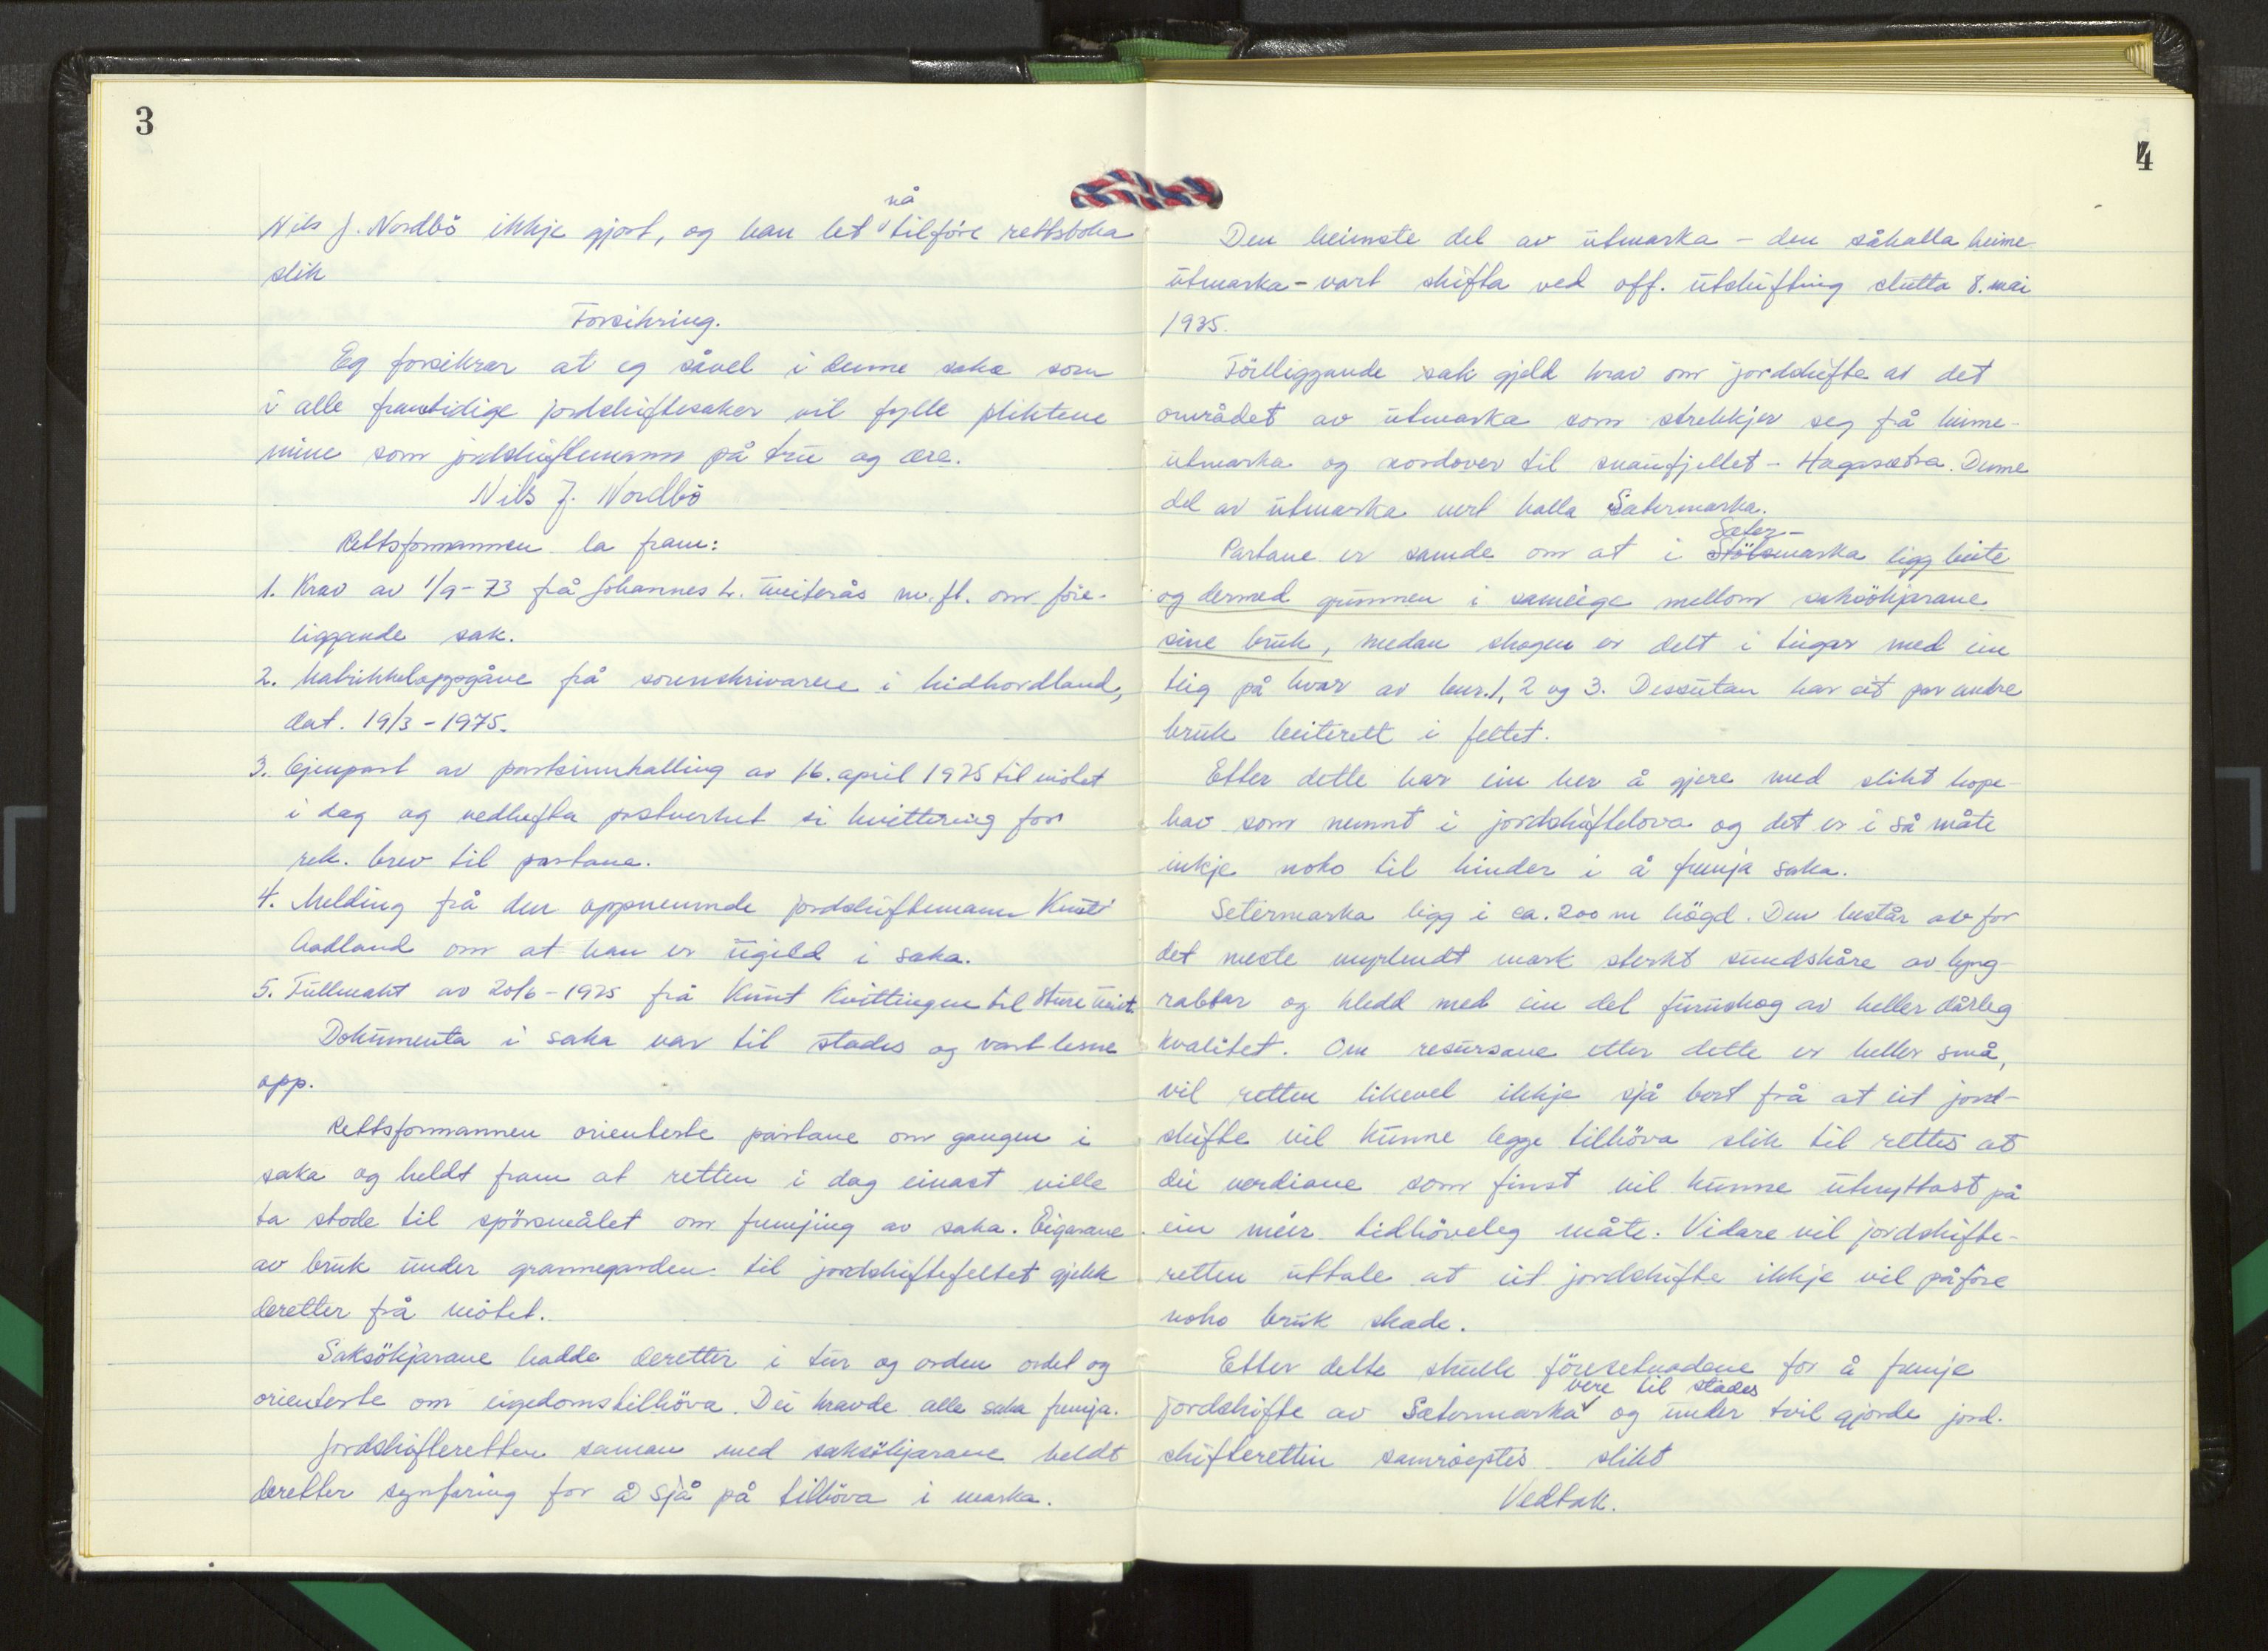 3
Nils J. Nordbö ikkje gjort, og han let nå tilföre rettsboka
slik
Forsikring.
Eg forsikrar at eg såvel i denne saka som
i alle framtidige jordskiftesaker vil fylle pliktene
mine som jordskiftemann på tru og ære.
Nils J. Nordbö
Rettsformannen la fram:
1. Krav av 1/9-73 frå Johannes L. Tveiterås m.fl. om före-
liggande sak.
2. Matrikkeloppgåve frå sorenskrivaren i Midhordland,
dat. 19/3-1975.
3. Gjenpart av partsinnkalling av 16. april 1975 til mötet
i dag og vedhefta postverket si kvittering for
rek. brev til partane.
4. Melding frå den oppnemnde jordskiftemann Knut
Aadland om at han er ugild i saka.
5. Fullmakt av 20/6-1975 frå Knut Kvittingen til Sture Tveit.
Dokumenta i saka var til stades og vart lesne
opp.
Rettsformannen orienterte partane om gangen i
saka og heldt fram at retten i dag einast ville
ta stode til spörsmålet om fremjing av saka. Eigarane
av bruk under grannegarden til jordskiftefeltet gjekk
deretter frå mötet.
Saksökjarane hadde deretter i tur og orden ordet og
orienterte om eigedomstilhöva. Dei kravde alle saka fremja.
Jordskifteretten saman med saksökjarane heldt
deretter synfaring for å sjå på tilhöva i marka.
4
Den heimste del av utmarka - den såkalla heime-
utmarka - vart skifta ved off. utskifting slutta 8. mai
1935.
Föreliggande sak gjeld krav om jordskifte av det
området av utmarka som strekkjer seg frå heime-
utmarka og nordover til snaufjellet - Hagasætra. Denne
del av utmarka vert kalla Sætermarka.
Sæter-
Partane er samde om at i Stölsmarka ligg beite
og dermed grunnen i sameige mellom saksökjarane
sine bruk, medan skogen er delt i teigar med ein
teig på kvar av bnr. 1, 2 og 3. Dessutan har eit par andre
bruk beiterett i feltet.
Etter dette har ein her å gjere med slikt hope-
hav som nemnt i jordskiftelova og det er i så måte
inkje noko til hinder i å fremja saka.
Setermarka ligg i ca. 200 m högd. Den består av for
det meste myrlendt mark sterkt sundskåre av lyng-
rabbar og kledd med ein del furuskog av heller dårleg
kvalitet. Om resursane etter dette er heller små,
vil retten likevel ikkje sjå bort frå at eit jord-
skifte vil kunne legge tilhöva slik til rettes at
dei verdiane som finst vil kunne utnyttast på
ein meir tidhöveleg måte. Vidare vil jordskifte-
retten uttale at eit jordskifte ikkje vil påföre
noko bruk skade.
Etter dette skulle föresetnadene for å fremje
vere til stades
jordskifte av Sætermarka og under tvil gjorde jord-
skifteretten samröystes slikt
Vedtak.